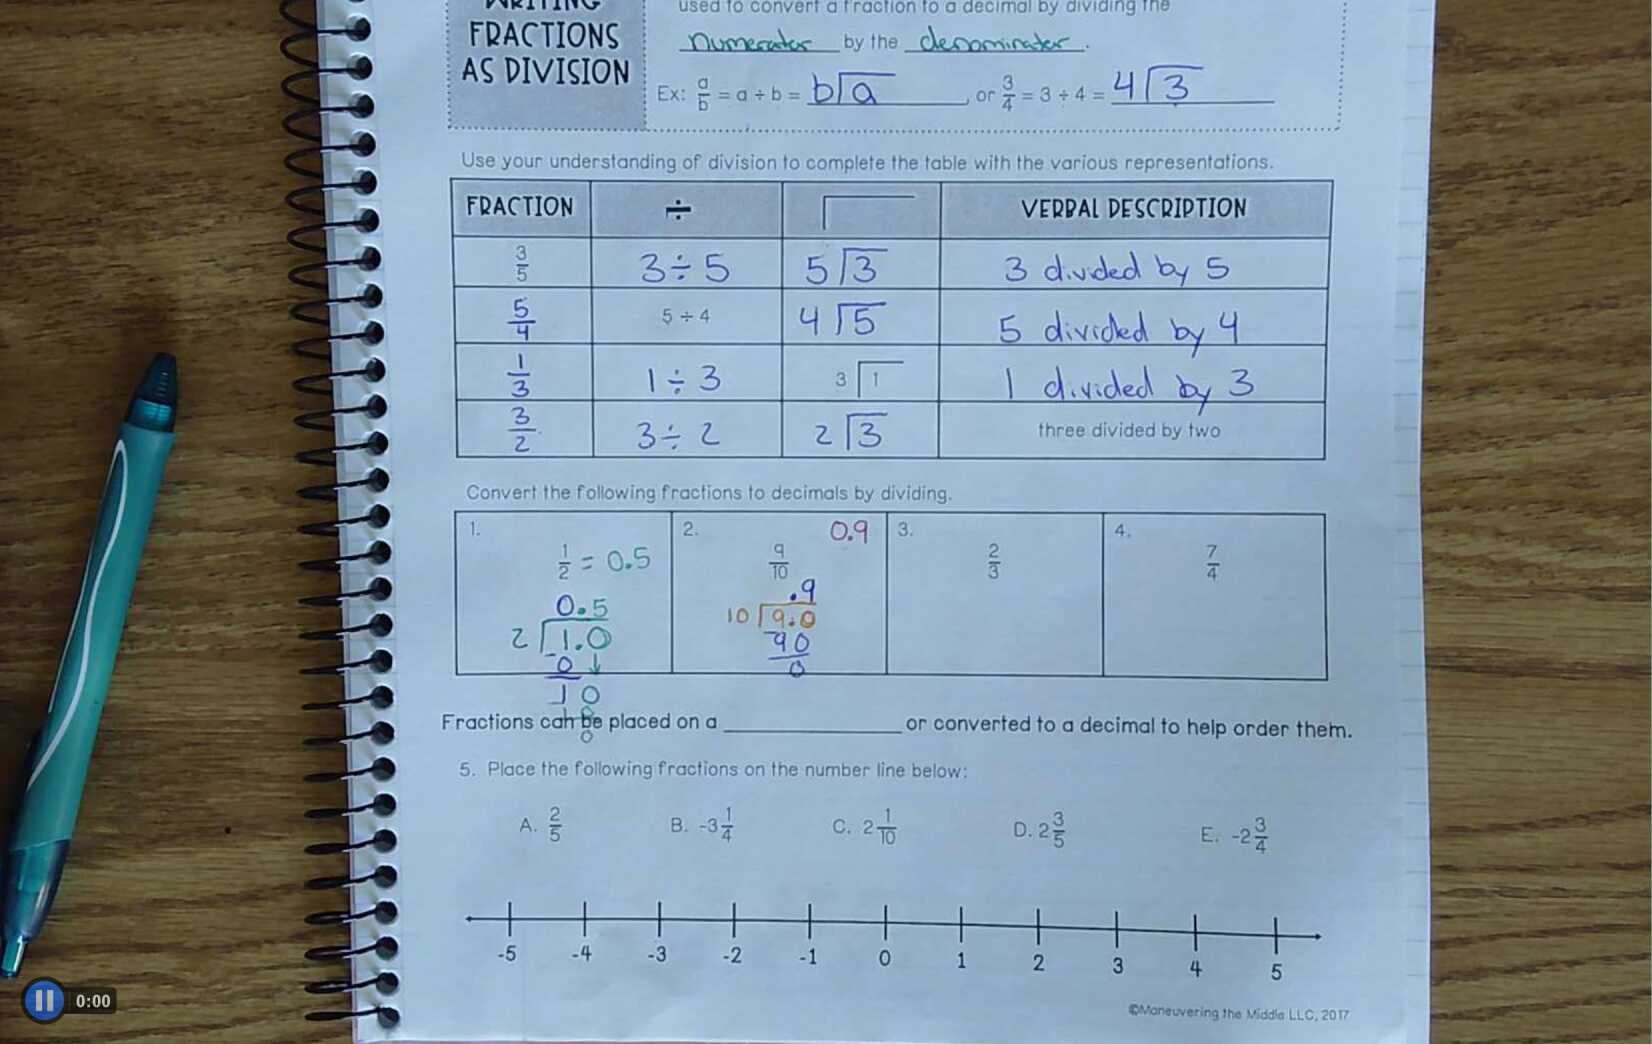 WRITING
FRACTIONS
AS DIVISION
used to convert a fraction to a decimal by dividing the
numerator by the denominator.
Ex: a/b = a ÷ b = b⟌a, or 3/4 = 3 ÷ 4 = 4⟌3
Use your understanding of division to complete the table with the various representations.
FRACTION ÷ ⟌ VERBAL DESCRIPTION
3/5 3 ÷ 5 5⟌3 3 divided by 5
5/4 5 ÷ 4 4⟌5 5 divided by 4
1/3 1 ÷ 3 3⟌1 1 divided by 3
3/2 3 ÷ 2 2⟌3 three divided by two
Convert the following fractions to decimals by dividing.
1.
1/2 = 0.5
0.5
2⟌1.0
-0
10
10
0
2. 0.9
9/10
.9
10⟌9.0
-90
0
3.
2/3
4.
7/4
Fractions can be placed on a ____ or converted to a decimal to help order them.
5. Place the following fractions on the number line below:
A. 2/5 B. -3 1/4 C. 2 1/10 D. 2 3/5 E. -2 3/4
-5 -4 -3 -2 -1 0 1 2 3 4 5
©Maneuvering the Middle LLC, 2017
0:00